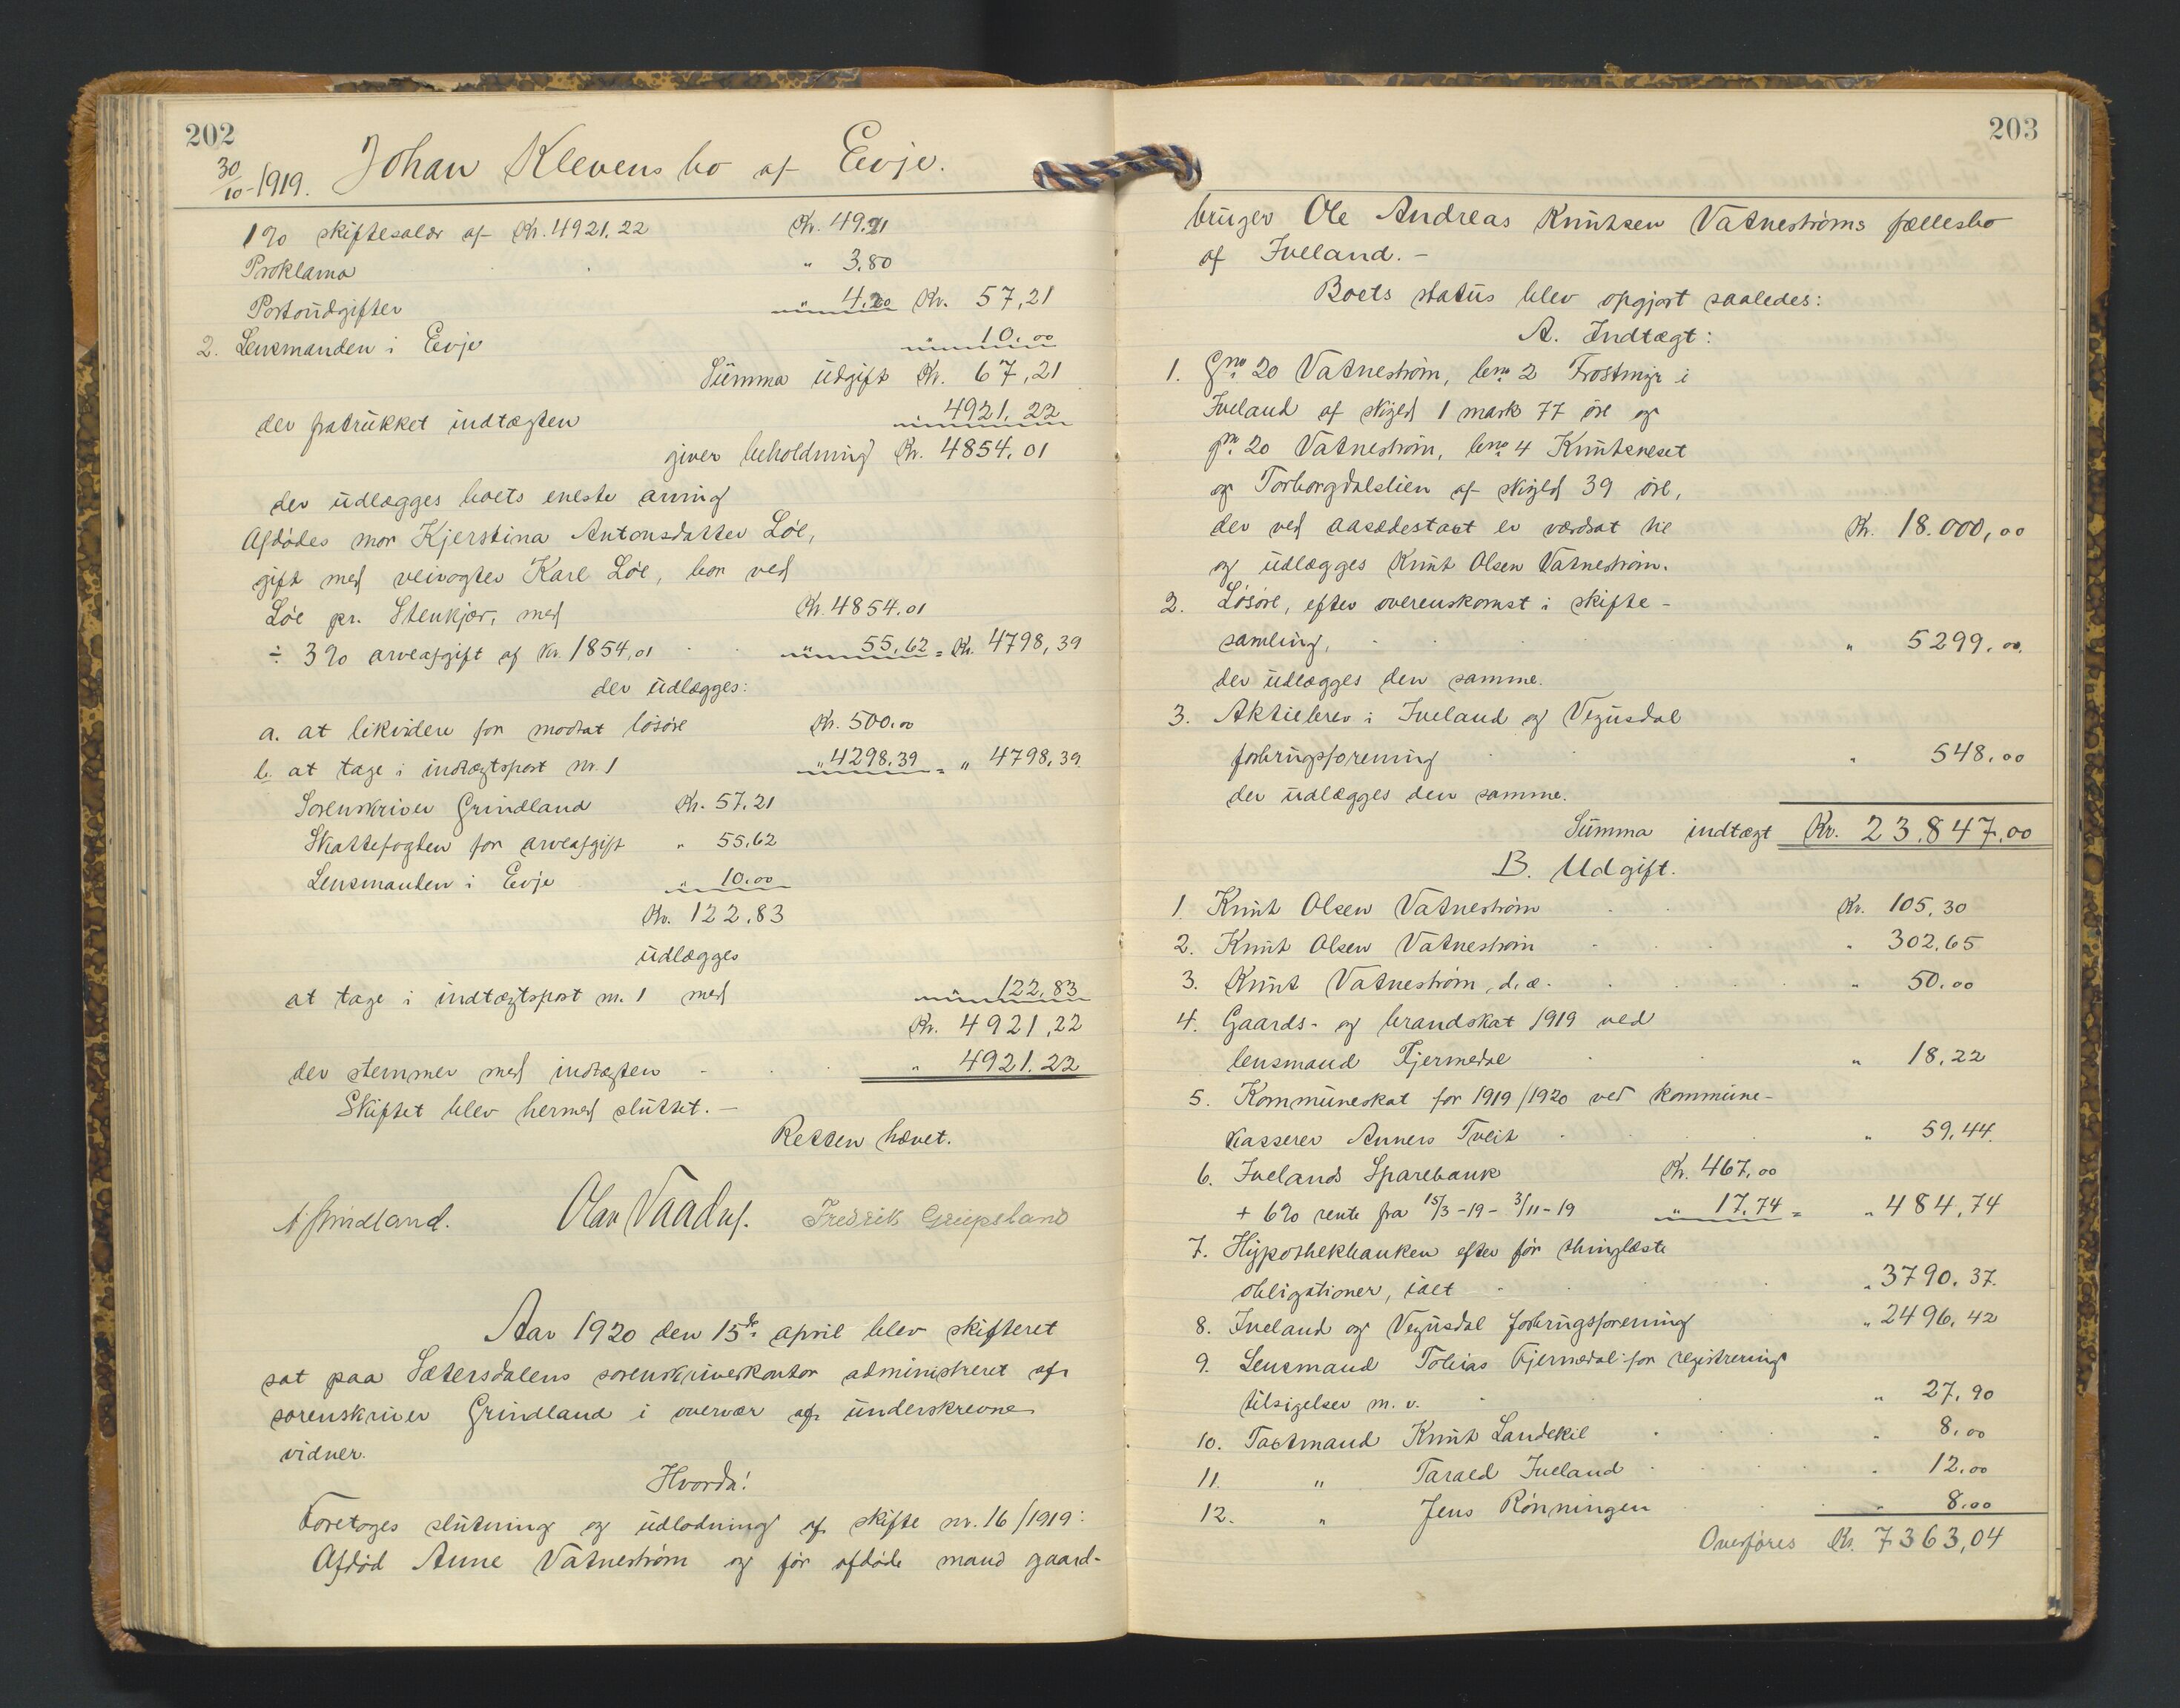 202
30/10-1919. Johan Klevens bo af Evje.
1% skiftesalær af Kr. 4921.22 Kr. 49.21
Proklama " 3.80
Portoudgifter " 4.20 Kr. 57,21
2. Lensmanden i Evje " 10.00
Summa udgift Kr. 67,21
der fratrukket indtægten " 4921.22
giver beholdning Kr. 4854.01
der udlægges boets eneste arving
Afdødes mor Kjerstina Antonsdatter Løe,
gift med veivogter Karl Løe, bor ved
Løe pr. Stenkjær, med Kr. 4854.01
÷ 3% arveafgift af kr 1854,01 " 55,62 = Kr. 4798,39
der udlægges:
a. at likvidere for modtat løsøre Kr. 500.00
b. at tage i indtægtspost nr. 1 " 4298.39 = " 4798,39.
Sorenskriver Grindland Kr. 57.21
Skattefogden for arveafgift " 55,62
Lensmanden i Evje " 10.00
Kr. 122.83
udlægges
at tage i indtægtspost nr. 1 med " 122.83
Kr. 4921,22
der stemmer med indtægten " 4921.22
Skiftet blev hermed sluttet.-
Retten hævet.
Grindland. Olav Fredrik Greipsland
Aar 1920 den 15de april blev skifteret
sat paa Sætersdalens sorenskriverkontor administreret af
sorenskriver Grindland i overvær af underskrevne
vidner.
Hvorda!
Foretoges slutning og udlodning af skifte nr. 16/1919:
Afdød Anne Vatnestrøm og før afdøde mand gaard-
203
bruger Ole Andreas Knutsen Vatnestrøms fællesbo
af Iveland.-
Boets status blev opgjort saaledes:
A. Indtægt:
1. Gno. 20 Vatnestrøm, bno. 2 Frostmyr i
Iveland af skyld 1 mark 77 øre og
gno. 20 Vatnestrøm, bno. 4 Knutsneset
og Torborgdalslien af skyld 39 øre,
der ved aasædestaxt er værdsat til Kr. 18.000,00
og udlægges Knut Olsen Vatnestrøm.
2. Løsøre, efter overenskomst i skifte-
samling, " 5299.00.
der udlægges den samme.
3. Aktiebrev i Iveland og Vegusdal
forbrugsforening " 548.00
der udlægges den samme.
Summa indtægt Kr. 23.847.00
B. Udgift.
1 Knut Olsen Vatnestrøm Kr. 105,30
2. Knut Olsen Vatnestrøm " 302,65
3. Knut Vatnestrøm, d.æ. " 50.00
4. Gaards- og brandskat 1919 ved
lensmand Fjermedal " 18,22
5. Kommuneskat for 1919/1920 ved kommune-
kasserer Anners Tveit " 59,44.
6. Ivelands Sparebank Kr. 467,00
+ 6% rente fra 15/3-19 - 3/11-19 " 17,74 = " 484,74
7. Hypothekbanken efter før thinglæste
obligationer, ialt " 3790.37.
8. Iveland og Vegusdal forbrugsforening " 2496,42
9. Lensmand Tobias Fjermedal for registrering
tilsigelser m.v. " 27,90
10. Taxtmand Knut Landekil " 8,00
11. " Tarald Iveland " 12.00
12. " Jens Rønningen " 8.00
Overføres Kr. 7363,04